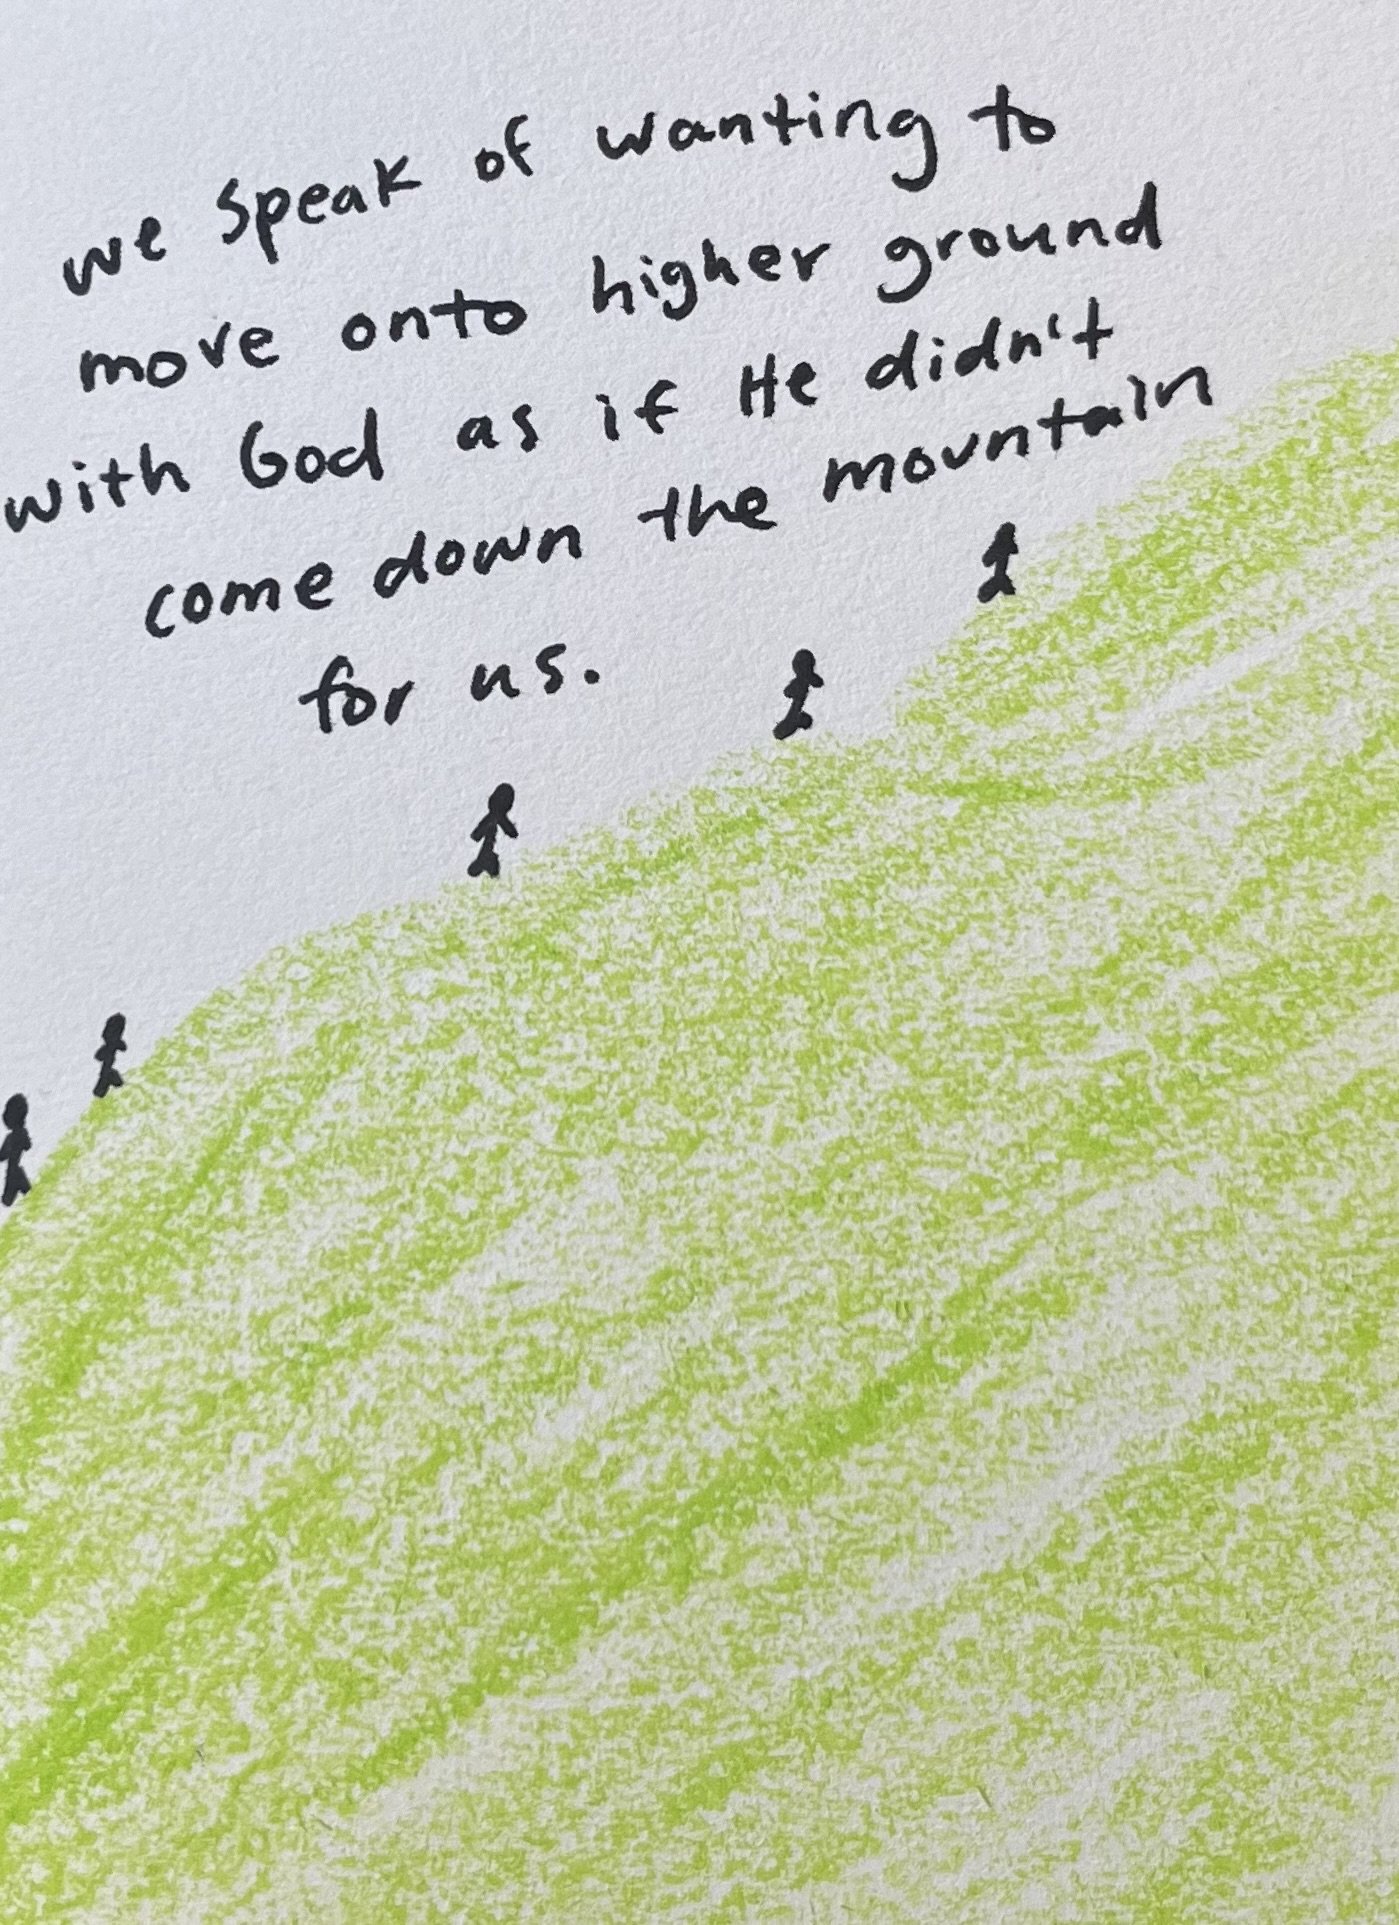 we speak of wanting to
move onto higher ground
with God as if He didn't
come down the mountain
for us.